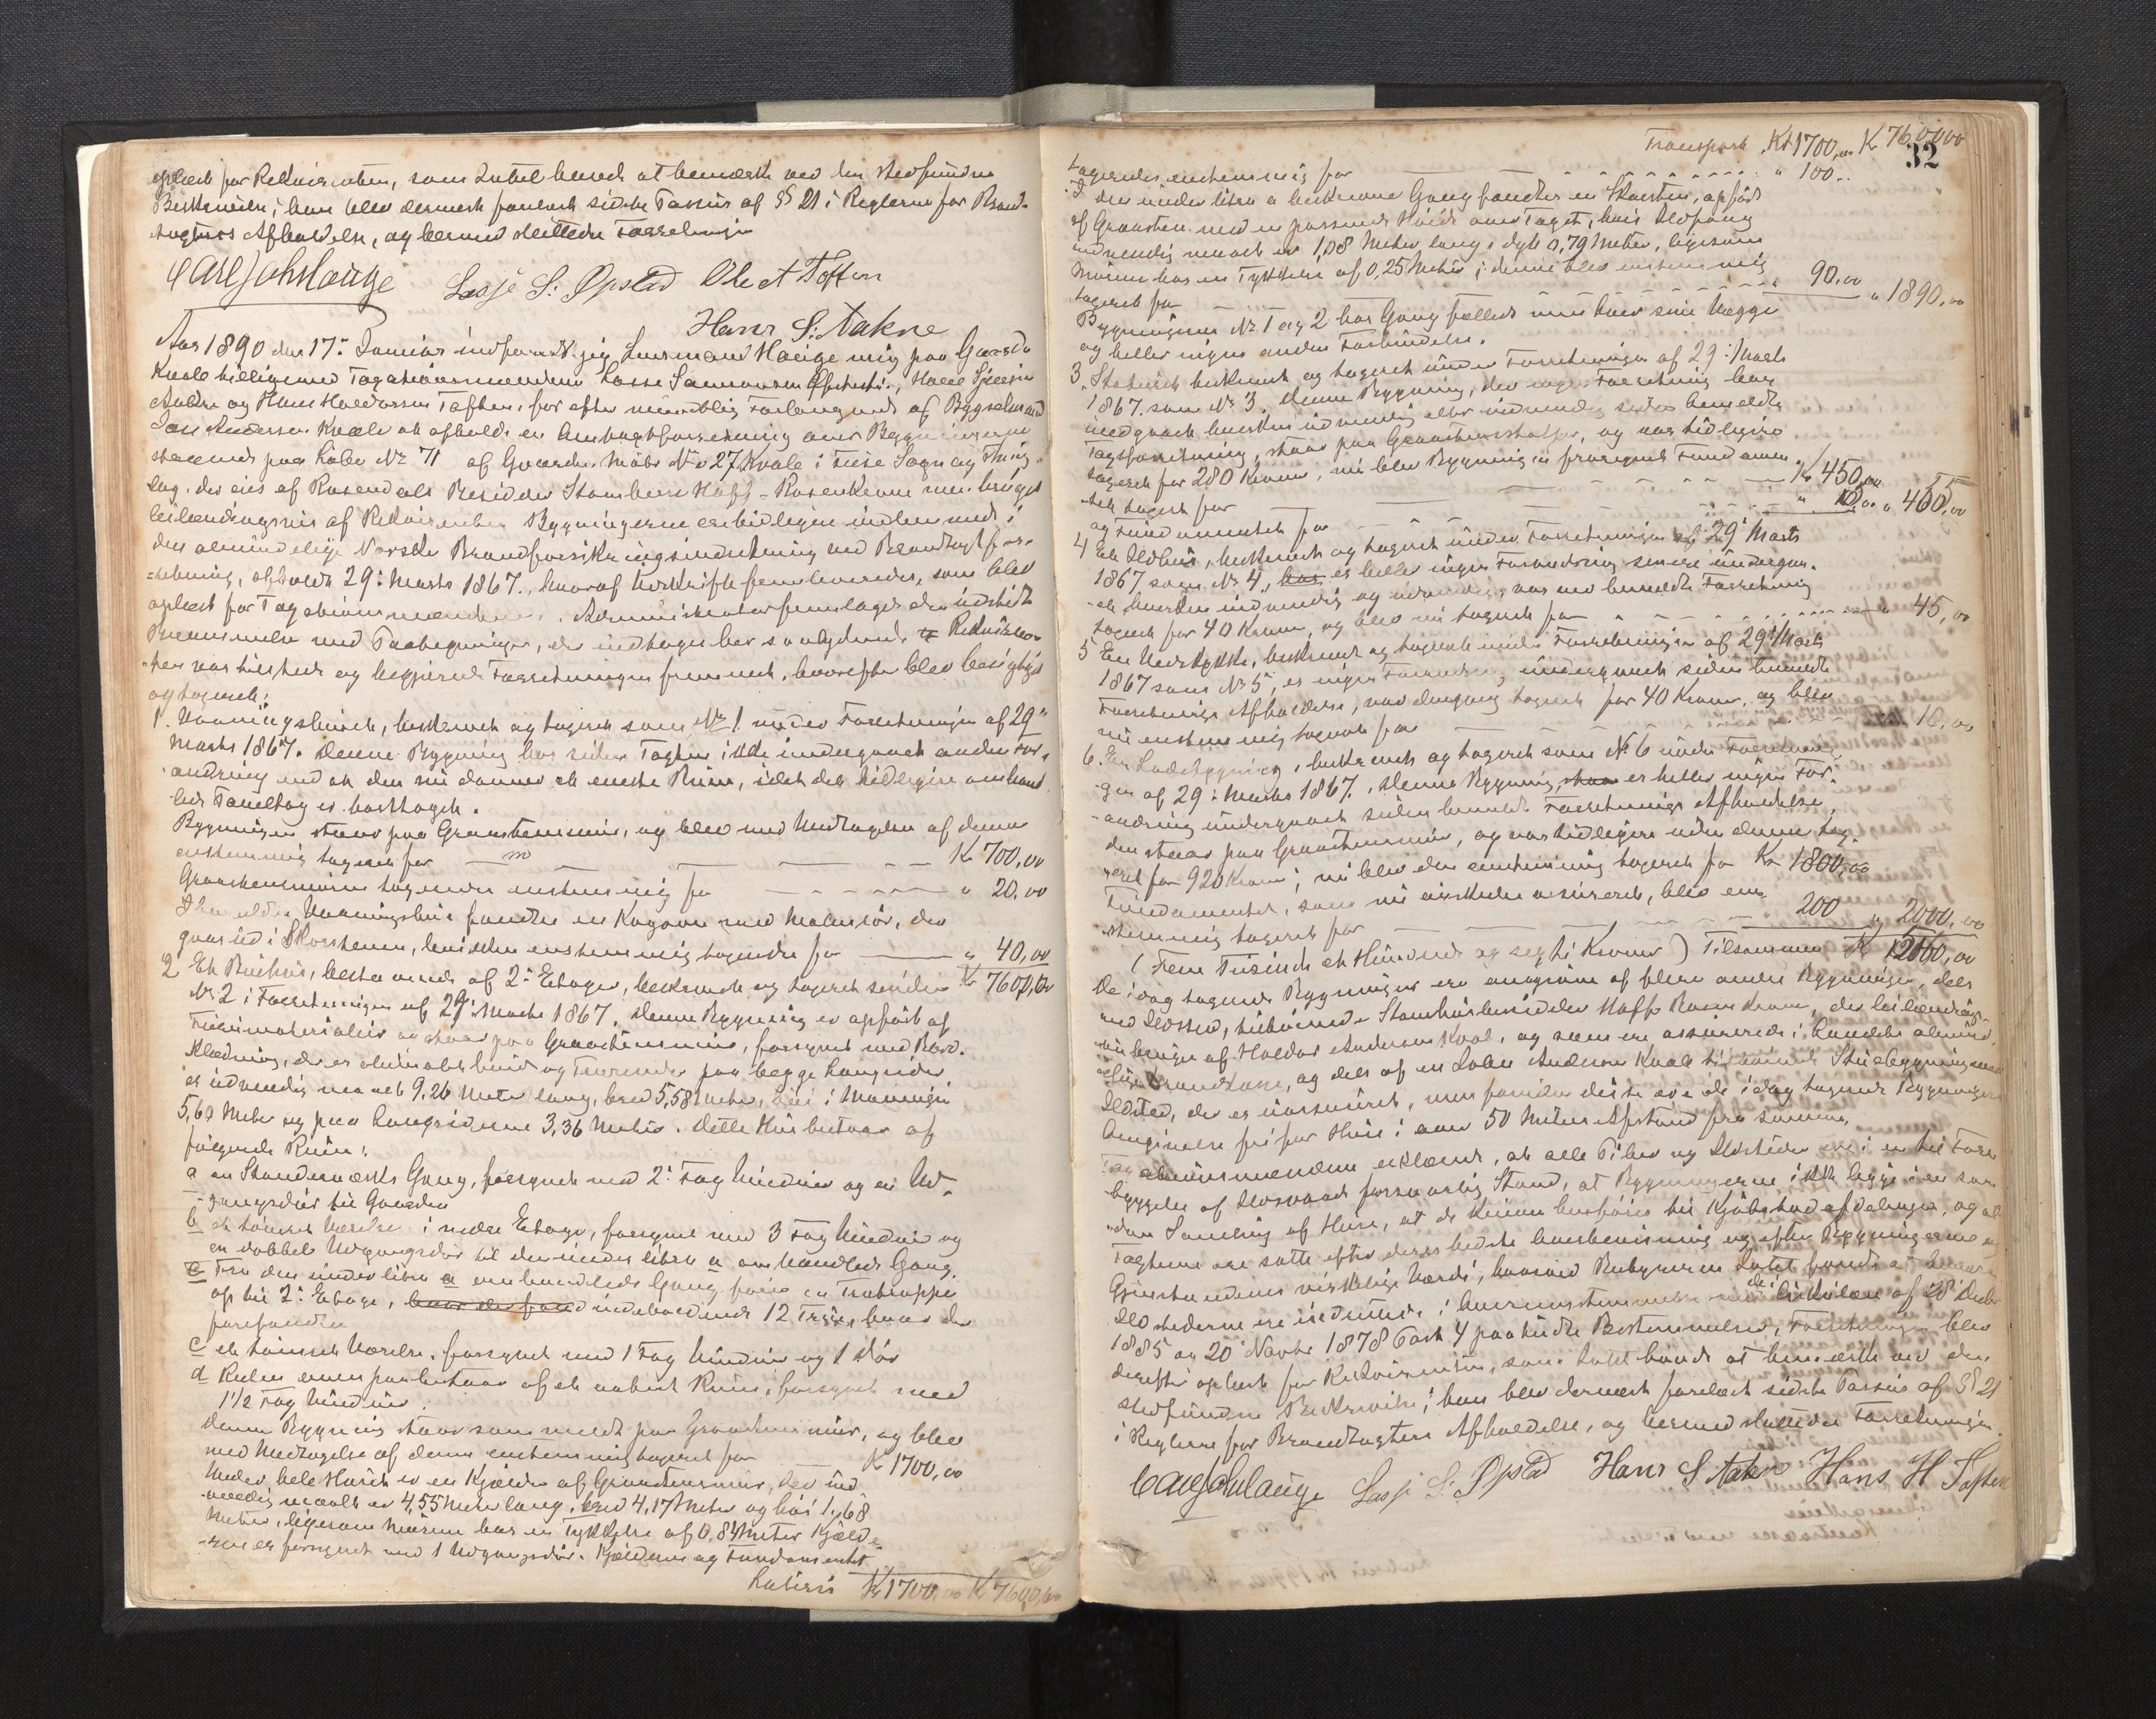 oplæst for Rekvirenten, som Intet havde at bemærke ved den stedfundne
Beskrivelse; han blev dernæst forelæst sidste Passus af §§ 21 i Reglerne for Brand-
tagters Afholdelse, og hermed sluttedes Forretningen
Carl Joh Hauge Lasse S: Opstad Ole A Toften
Hans S: Aakre
Aar 1890 den 17: Januar indfandt jeg Lensmand Hauge mig paa Gaarden
Kvale tilligemed Taxationsmændene Lasse Samsonsen Opstad,
Aakre og Hans Haldorsen Toften, for efter mundtlig Forlangende af Bygselmand
Lars Andersen Kvale at afholde en Omtaxtforretning over Bygningerne
staaende paa Løbe No 71 af Gaarden Matr No 27 Kvale i Fuse Sogn og Thing-
lag. der eies af Rosendals Besidder Stamherre Hoff-Rosenkrone men bruges
leilændingsvis af Rekvirenten Bygningerne ere tidligere indlemmede i
den almindelige Norske Brandforsikringsindretning ved Brandtaxtfor-
retning, afholdt 29: Marts 1867., hvoraf Udskrift fremlagdes, som blev
oplæst for Taxationsmændene. Administrator fremlagde den udstedte
Opnævnelse med Paategninger, der indtages her saalydende: Rekviren-
ten var tilstede og begjærede Forretningen fremmet, hvorefter blev besigtiget
og taxeret:
1. Vaaningshuset, beskrevet og taxeret som No 1 under Forretningen af 29:
Marts 1867. Denne Bygning har siden Taxten ikke undergaaet anden For-
andring end at den nu danner et eneste Rum, idet det tidligere omhand-
lede Paneltag er borttaget.
Bygningen staar paa Graastensmur, og blev med Undtagelse af denne
enstemmig taxeret for Kr 700,00
Graastensmuren taxeredes enstemmig for " 20,00
I Vaaningshus fandtes en Kogeovn med Malmrør, der
gaar ud i Skorstenen, hvilken enstemmig taxeredes for " 40,00
2 Et Buehus, bestaaende af 2: Etager, beskrevet og taxeret under Kr 760,00
No 2 i Forretningen af 29: Marts 1867. Denne Bygning er opført af
Furumaterialier og staar paa Graastensmur, forsynet med Bord-
klædning, der er oliemalet hvid og Tverender paa begge Langsider
er udvendig maalt 9,26 Meter lang, bred 5,58 Meter, høi i Mønningen
5,60 Meter og paa Langsiderne 3,36 Meter. Dette Hus bestaar af
følgende Rum:
a en Standerværks Gang, forsynet med 2: Fag Vinduer og en Ud-
gangsdør til Gaarden
b et tømret Værelse i nedre Etage, forsynet med 3 Fag Vinduer og
en dobbelt Udgangsdør til den under litra a omhandlede Gang.
Fra den under litra a omhandlede Gang fører en Trætrappe
op til 2: Etage, hvor der fand indeholdende 12 Trin, hvor der
forefandtes
c et tømret Værelse, forsynet med 1 Fag Vinduer og 1 Dør
d Rulen ovenpaa bestaar af et aabent Rum, forsynet med
1½ Fag Vinduer.
Denne Bygning staar som meldt paa Graastensmur, og blev
med Undtagelse af denne enstemmig taxeret for Kr 1700,00
Under hele Huset er en Kjælder af Graastensmur, der ind-
vendig maalt er 4,55 Meter lang, bred 4,17 Meter og høi 1,68
Meter, ligesom Muren har en Tykkelse af 0,84 Meter Kjæld-
eren er forsynet med 1 Udgangsdør. Kjælderen og Fundamentet
Lateris Kr 1700,00 Kr 760,00
32
Transport Kr 1700,00 K 760,00
taxeredes enstemmig for " 100..
I den under litra a beskrevne Gang fandtes en Skorsten, opført
af Graasten med en passende Høide over Taget, hvis Ildfang
indvendig maalt er 1,08 Meter lang, dyb 0,79 Meter, ligesom
Muren har en Tykkelse af 0,25 Meter; denne blev enstemmig
taxeret for 90,00 " 1890,00
Bygningerne No 1 og 2 har Gang fælleds men hver sine Vægge
og heller ingen anden Forbindelse.
3. Stabburet beskrevet og taxeret under Forretningen af 29: Marts
1867. som No 3. Denne Bygning, der ingen Forandring har
undergaaet hverken udvendig eller indvendig siden bemeldte
Taxtforretning, staar paa Graastensstolper, og var tidligere
taxeret for 280 Kroner; nu blev Bygningen fraregnet Fundamen-
tet taxeret for Kr 450,00
og Fundamentet for " 10,00 " 460,00
4 et Ildhus, beskrevet og taxeret under Forretningen af 29: Marts
1867 som No 4, har er heller ingen Forandring senere undergaa-
et hverken indvendig og udvendig, var ved bemeldte Forretning
taxeret for 40 Kroner, og blev nu taxeret for " 45,00
5 En Vedskykke, beskrevet og taxeret under Forretningen af 29: Marts
1867 som No 5, er ingen Forandring undergaaet siden bemeldte
Forretnings Afholdelse, var dengang taxeret for 40 Kroner, og blev
nu enstemmig taxeret for 10,00
6. En Ladebygning, beskrevet og taxeret som No 6 under Forretnin-
gen af 29: Marts 1867. Denne Bygning staar er heller ingen For-
andring undergaaet siden bemeldte Forretnings Afholdelse,
den staar paa Graastensmur, og var tidligere uden denne tax-
eret for 920 Kroner; nu blev den enstemmig taxeret for Kr 1800,00
Fundamentet, som nu ønskedes assureret, blev en-
stemmig taxeret for 200 " 2000,00
(Fem Tusinde et Hundrede og sexti Kroner) Tilsammen Kr 5160,00
De idag taxerede Bygninger ere omgivne af flere andre Bygninger, dels
med Ildsted, tilhørende Stamhusbesidder Hoff Rosenkrone, der leilændings-
vis bruges af Haldor Andersen Kvale, og som ere assurerede i Landets almind-
elige Brandkasse, og dels af en Lars Andersen Kvale tilhørende Stuebygning med
Ildsted, der er uassureret, men foruden disse ere de idag taxerede Bygningers
Omgivelse fri for Huse i over 50 Meters Afstand fra samme.
Taxationsmændene erklærede, at alle Piber og Ildsteder ere i en til Fore-
byggelse af Ildsvaade forsvarlig Stand, at Bygningerne ikke ligge i en saa-
dan Samling af Huse, at de kunne henføres til Kjøbstadafdelingen, og at
Taxterne ere satte efter deres bedste Overbevisning og efter Bygningernes og
Gjenstandenes virkelige Værdi, hvorved Bestyreren Intet fandt at bemærke
Ildstederne ere indrettede i Overensstemmelse med de i Cirkulære af 28: Decbr
1885 og 20: Novbr 1878 Post 4 paabudte Bestemmelser, Forretningen blev
derefter oplæst for Rekvirenten, som Intet havde at bemærke ved den
stedfundne Beskrivelse; han blev dernæst forelæst sidste Passus af §§ 21
i Reglerne for Brandtagters Afholdelse, og hermed sluttedes Forretningen.
Carl Joh Hauge Lasse S: Opstad Hans S Aakre Hans H Toften